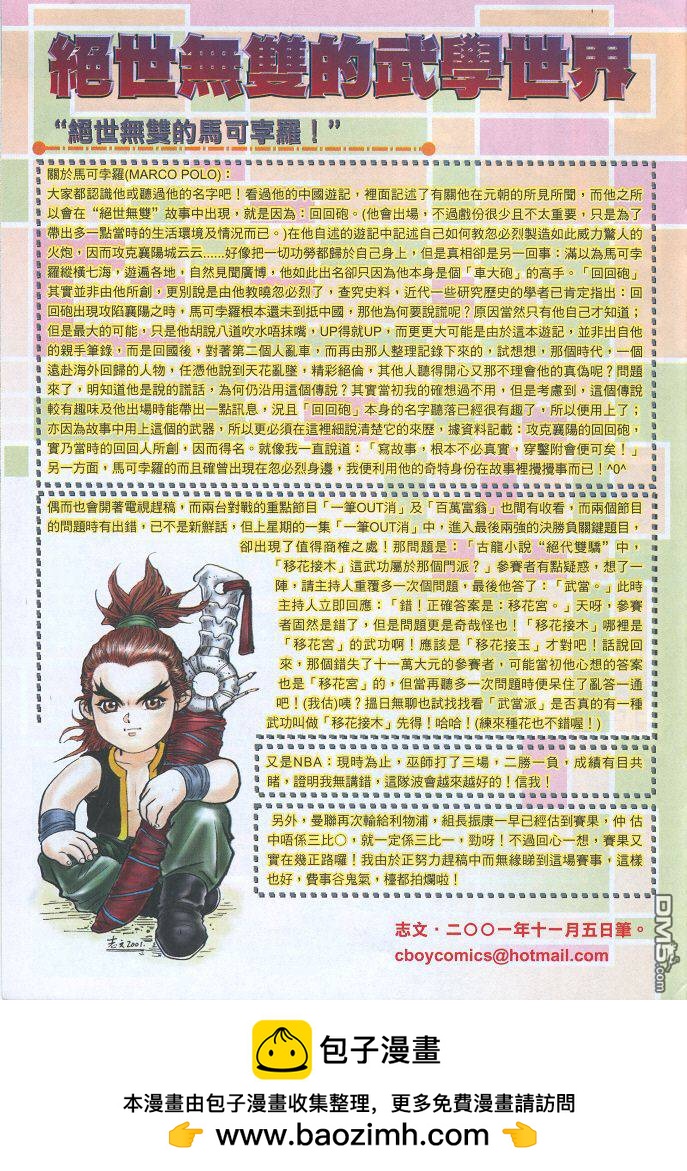 絕世無雙的武學世界
“絕世無雙的馬可孛羅！”
關於馬可孛羅(MARCO POLO)：
大家都認識他或聽過他的名字吧！看過他的中國遊記，裡面記述了有關他在元朝的所見所聞，而他之所
以會在“絕世無雙”故事中出現，就是因為：回回砲。(他會出場，不過戲份很少且不太重要，只是為了
帶出多一點當時的生活環境及情況而已。)在他自述的遊記中記述自己如何教忽必烈製造如此威力驚人的
火炮，因而攻克襄陽城云云......好像把一切功勞都歸於自己身上，但是真相卻是另一回事：滿以為馬可孛
羅縱橫七海，遊遍各地，自然見聞廣博，他如此出名卻只因為他本身是個「車大砲」的高手。「回回砲」
其實並非由他所創，更別說是由他教曉忽必烈了，查究史料，近代一些研究歷史的學者已肯定指出：回
回砲出現攻陷襄陽之時，馬可孛羅根本還未到抵中國，那他為何要說謊呢？原因當然只有他自己才知道；
但是最大的可能，只是他胡說八道吹水唔抹嘴，UP得就UP，而更更大可能是由於這本遊記，並非出自他
的親手筆錄，而是回國後，對著第二個人亂車，而再由那人整理記錄下來的，試想想，那個時代，一個
遠赴海外回歸的人物，任憑他說到天花亂墜，精彩絕倫，其他人聽得開心又那不理會他的真偽呢？問題
來了，明知道他是說的謊話，為何仍沿用這個傳說？其實當初我的確想過不用，但是考慮到，這個傳說
較有趣味及他出場時能帶出一點訊息，況且「回回砲」本身的名字聽落已經很有趣了，所以便用上了；
亦因為故事中用上這個的武器，所以更必須在這裡細說清楚它的來歷，據資料記載：攻克襄陽的回回砲，
實乃當時的回回人所創，因而得名。就像我一直說道：「寫故事，根本不必真實，穿鑿附會便可矣！」
另一方面，馬可孛羅的而且確曾出現在忽必烈身邊，我便利用他的奇特身份在故事裡攪攪事而已！^0^
偶而也會開著電視趕稿，而兩台對戰的重點節目「一筆OUT消」及「百萬富翁」也間有收看，而兩個節目
的問題時有出錯，已不是新鮮話，但上星期的一集「一筆OUT消」中，進入最後兩強的決勝負關鍵題目，
卻出現了值得商榷之處！那問題是：「古龍小說“絕代雙驕”中，
「移花接木」這武功屬於那個門派？」參賽者有點疑惑，想了一
陣，請主持人重覆多一次個問題，最後他答了：「武當。」此時
主持人立即回應：「錯！正確答案是：移花宮。」天呀，參賽
者固然是錯了，但是問題更是奇哉怪也！「移花接木」哪裡是
「移花宮」的武功啊！應該是「移花接玉」才對吧！話說回
來，那個錯失了十一萬大元的參賽者，可能當初他心想的答案
也是「移花宮」的，但當再聽多一次問題時便呆住了亂答一通
吧！(我估)咦？搵日無聊也試找找看「武當派」是否真的有一種
武功叫做「移花接木」先得！哈哈！(練來種花也不錯喔！)
又是NBA：現時為止，巫師打了三場，二勝一負，成績有目共
睹，證明我無講錯，這隊波會越來越好的！信我！
另外，曼聯再次輸給利物浦，組長振康一早已經估到賽果，仲 估
中唔係三比〇，就一定係三比一，勁呀！不過回心一想，賽果又
實在幾正路囉！我由於正努力趕稿中而無緣睇到這場賽事，這樣
也好，費事谷鬼氣，檯都拍爛啦！
志文2001.
志文‧二〇〇一年十一月五日筆。
cboycomics@hotmail.com
DM5.com
包子漫畫
本漫畫由包子漫畫收集整理，更多免費漫畫請訪問
👉 www.baozimh.com 👈